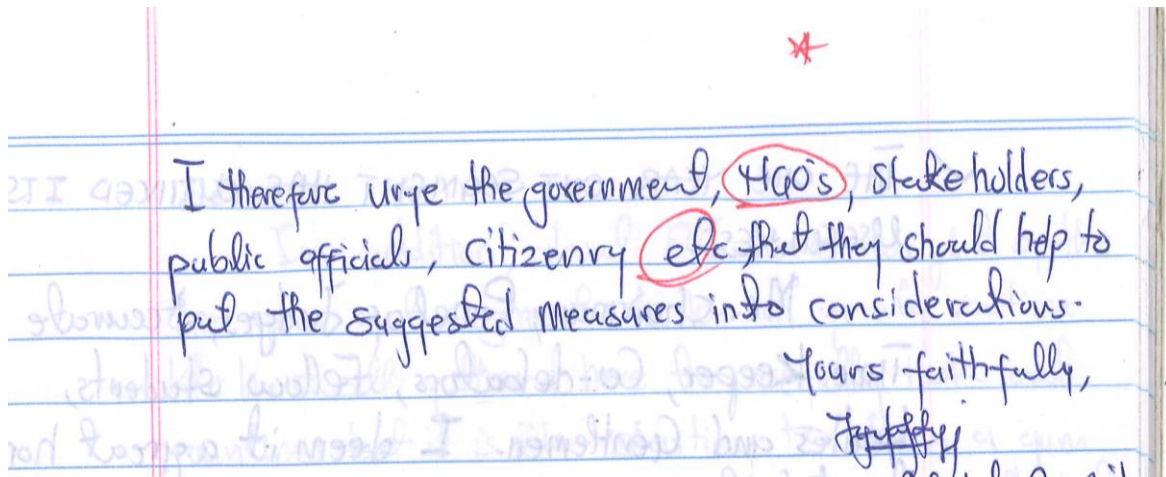 I therefore urge the government, NGO's, stakeholders,
public officials, citizenry etc that they should help to
put the suggested measures into considerations.
Yours faithfully,